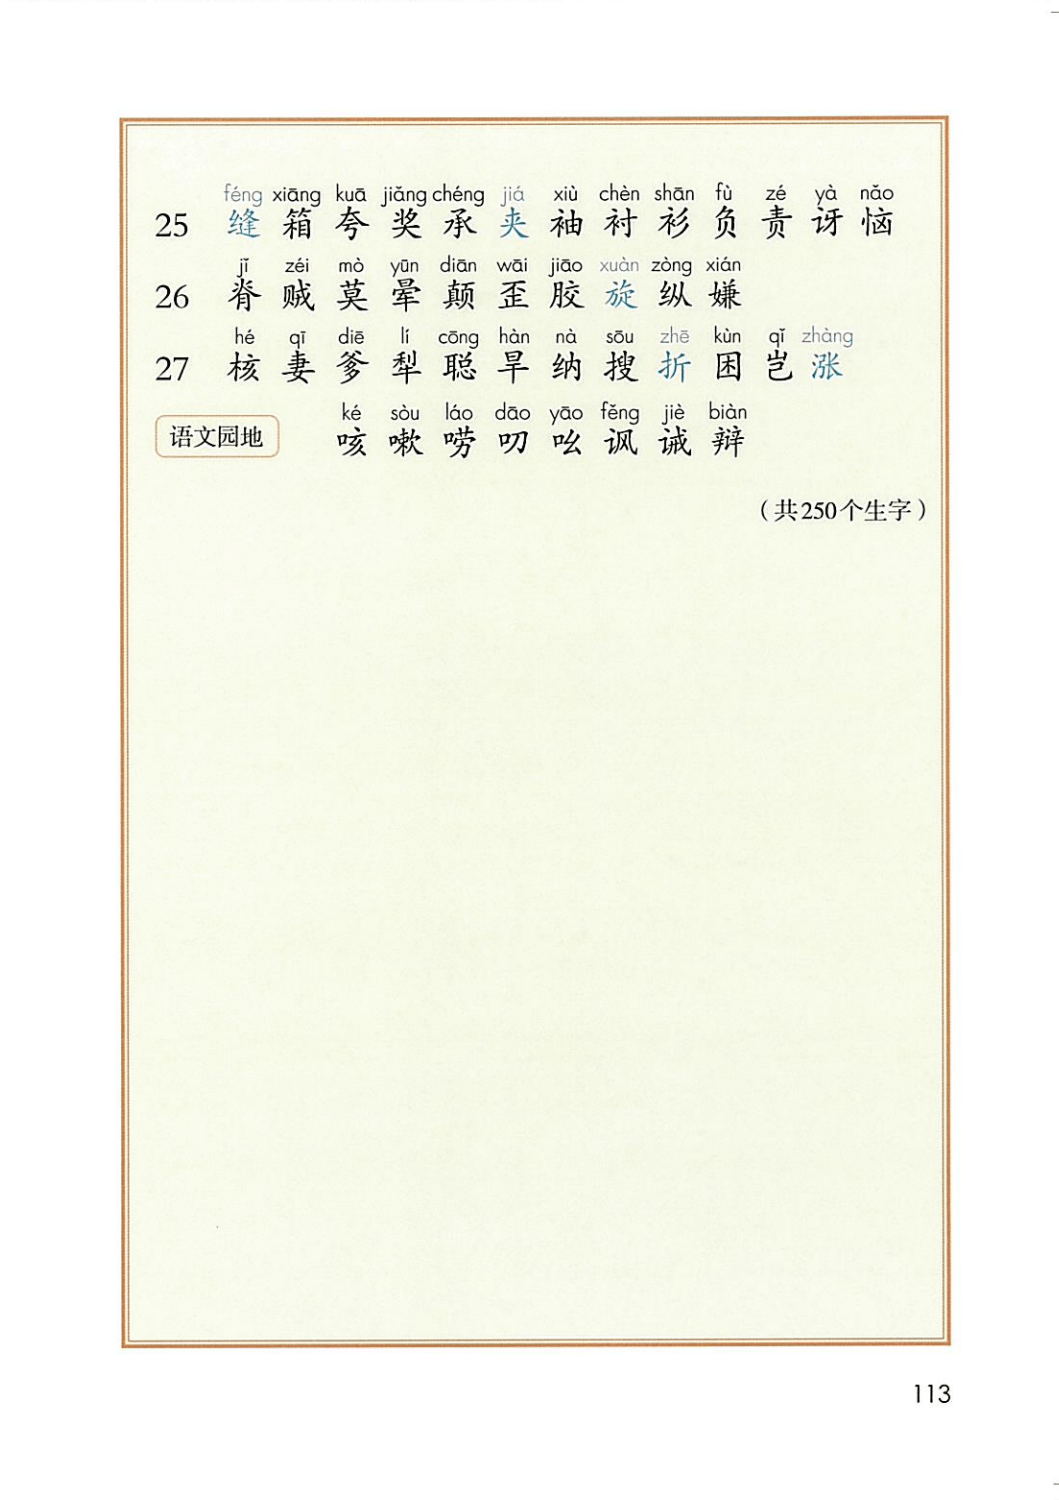 féng xiāng kuā jiǎng chéng jiá xiù chèn shān fù zé yà nǎo
25 缝 箱 夸 奖 承 夹 袖 衬 衫 负 责 讶 恼
jǐ zéi mò yūn diān wāi jiāo xuàn zòng xián
26 脊 贼 莫 晕 颠 歪 胶 旋 纵 嫌
hé qī diē lí cōng hàn nà sōu zhē kùn qǐ zhàng
27 核 妻 爹 犁 聪 旱 纳 搜 折 困 岂 涨
ké sòu láo dāo yāo fěng jiè biàn
语文园地 咳 嗽 唠 叨 吆 讽 诫 辩
（共250个生字）
113